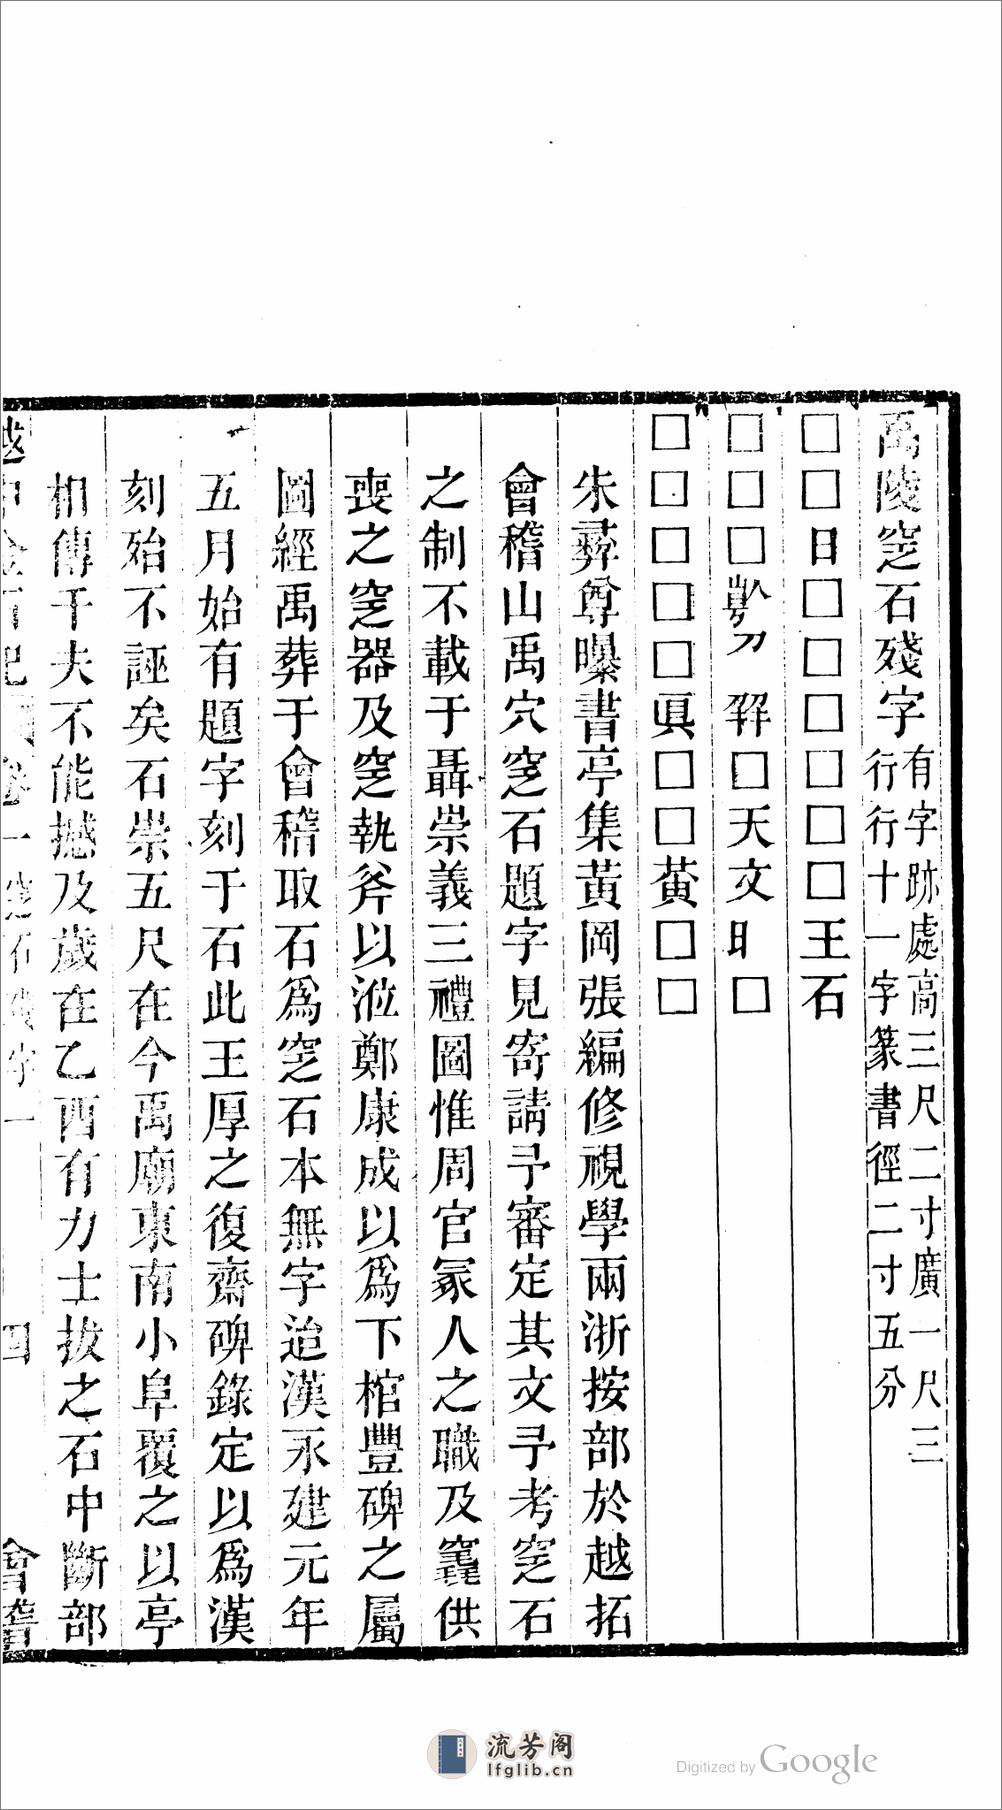 禹陵窆石殘字有字跡處高三尺二寸廣一尺三
行行十一字篆書徑二寸五分
□□日□□□□□□王石
□□□ 刀 □天文 □
□□□□□眞□□黃□□
朱彝尊曝書亭集黃岡張編修視學兩浙按部於越拓
會稽山禹穴窆石題字見寄請予審定其文予考窆石
之制不載于聶崇義三禮圖惟周官冢人之職及竁供
喪之窆器及窆執斧以涖鄭康成以爲下棺豐碑之屬
圖經禹葬于會稽取石爲窆石本無字迨漢永建元年
五月始有題字刻于石此王厚之復齋碑錄定以爲漢
刻殆不誣矣石崇五尺在今禹廟東南小阜覆之以亭
相傳千夫不能撼及歲在乙酉有力士拔之石中斷部
越中金石記 卷一 窆石殘字一 四 會稽
流芳阁
lfglib.cn
Digitized by Google